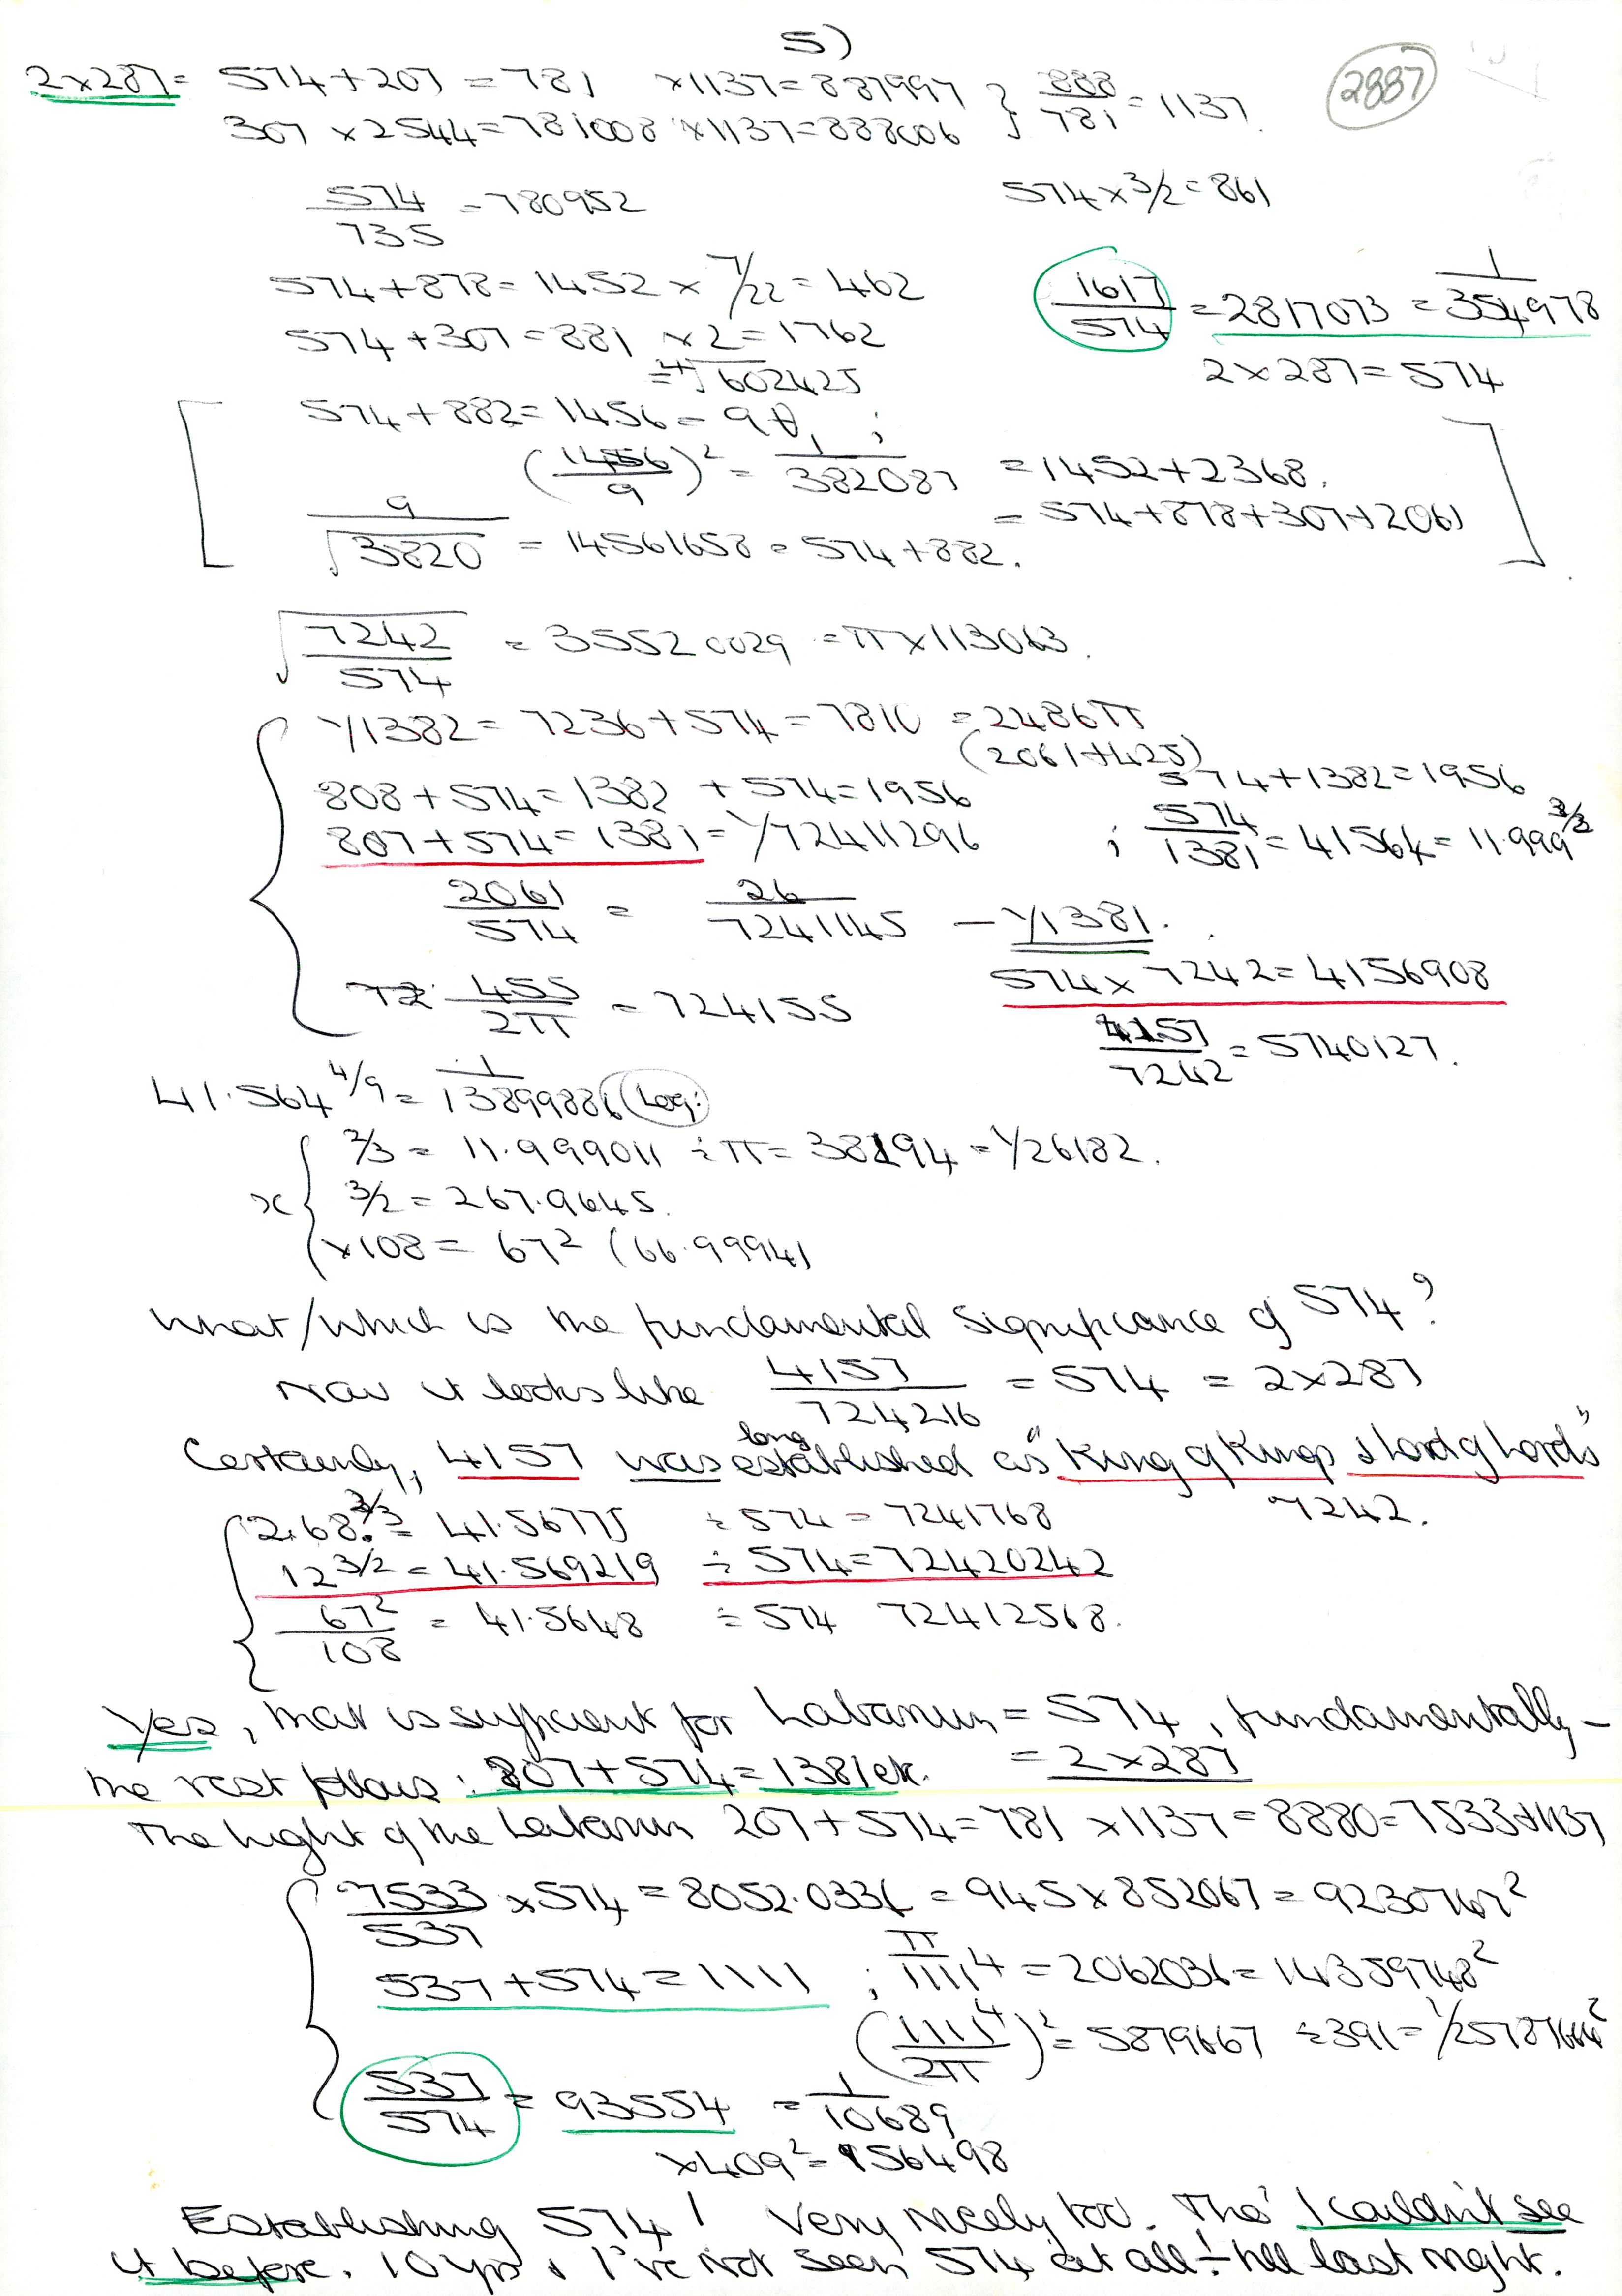 5)
2887
2×287= 574+207 = 781 ×1137=887997 } 888/781 = 1137.
307 ×2544=781008 ×1137=888006
574/735 = 780952
574×3/2=861
574+878= 1452 × 7/22 = 462
1617/574 = 2817073 = 1/354978
574+307=881 ×2=1762
2×287=574
=⁴√602425
574+882=1456= 9θ, ;
(1456/9)² = 1/382087 =1452+2368.
= 574+878+307+2061
9/√3820 = 14561658 = 574+882.
√7242/574 = 35520029 =π×113063.
1/1382= 7236+574=7810 =2486π
(2061+425)
808+574=1382 +574=1956
574+1382=1956
807+574=1381=1/72411296 ; 574/1381=41564=11.999^3/2
2061/574 = 26/7241145 – 1/1381.
574×7242=4156908
455/2π = 724155
4157/7242=5740127.
41.564^4/9= 1/13899886 (Log.)
x { 2/3 = 11.999011 ÷π= 38194=1/26182.
3/2 = 267.9645.
×108 = 67² (66.99941
What/which is the fundamental significance of 574?
Now it looks like 4157/724216 = 574 = 2×287
Certainly, 4157 was long established as "King of Kings & Lord of Lords"
7242.
2.68^3/2= 41.56775 ÷574=7241768
12^3/2=41.569219 ÷574=72420242
67²/108 = 41.5648 ÷574 72412568.
Yes, that is sufficient for Labarum=574, fundamentally–
= 2×287
the rest follows: 807+574=1381 etc.
The Light of the Labarum 207+574=781 ×1137=8880=7533+1137
7533/537 ×574=8052.0336 = 945×852067=9230767²
537+574=1111 ; π/1111⁴=2062036=14359748²
(1111⁴/2π)²=5879667 ÷391=
537/574 = 93554 = 1/10689
×409²=156498
Establishing 574! Very nicely too. Tho' I couldn't see
it before. 10 yrs & I've not seen 574 at all – till last night.